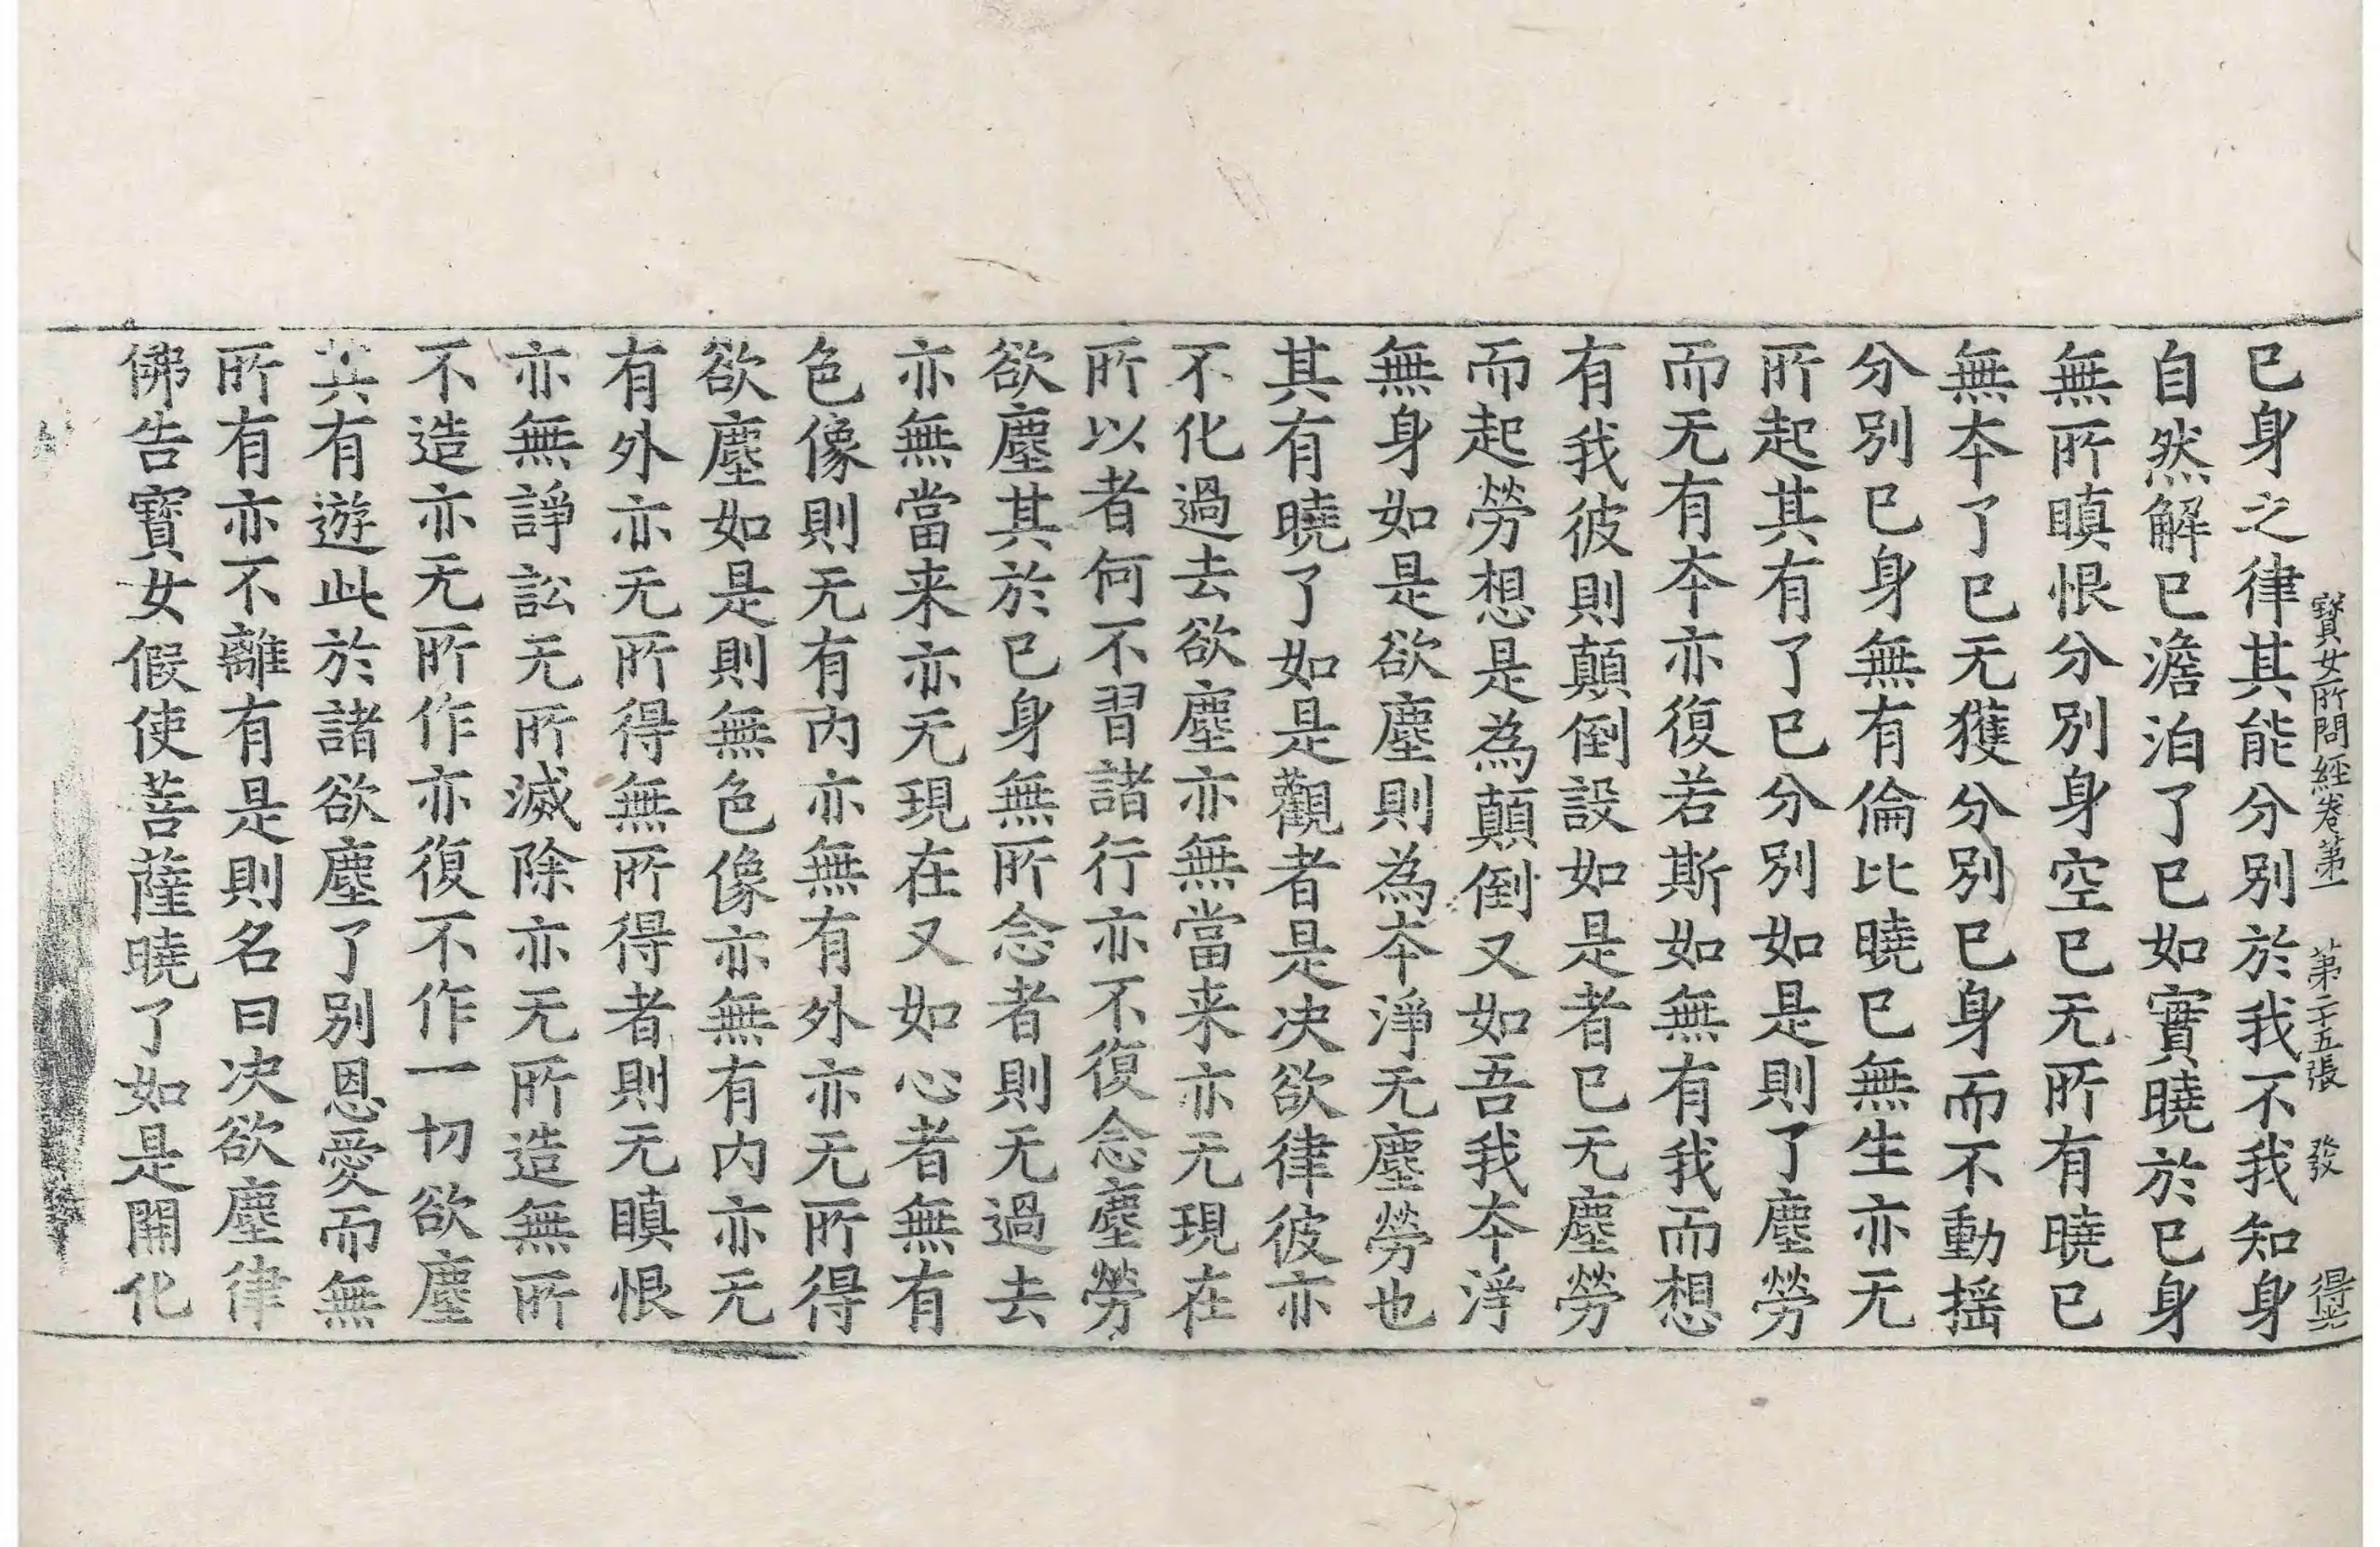 寶女所問經卷第一 第二十五張 發 得光
已身之律其能分別於我不我知身
自然解已澹泊了已如實曉於已身
無所瞋恨分別身空已无所有曉已
無夲了已无獲分別已身而不動揺
分別已身無有倫比曉已無生亦无
所起其有了已分別如是則了塵勞
而无有夲亦復若斯如無有我而想
有我彼則顛倒設如是者已无塵勞
而起勞想是為顛倒又如吾我夲淨
無身如是欲塵則為夲淨无塵勞也
其有曉了如是觀者是决欲律彼亦
不化過去欲塵亦無當来亦无現在
所以者何不習諸行亦不復念塵勞
欲塵其於已身無所念者則无過去
亦無當来亦无現在又如心者無有
色像則无有内亦無有外亦无所得
欲塵如是則無色像亦無有内亦无
有外亦无所得無所得者則无瞋恨
亦無諍訟无所滅除亦无所造無所
不造亦无所作亦復不作一切欲塵
其有遊此於諸欲塵了別恩愛而無
所有亦不離有是則名曰决欲塵律
佛告寶女假使菩薩曉了如是開化